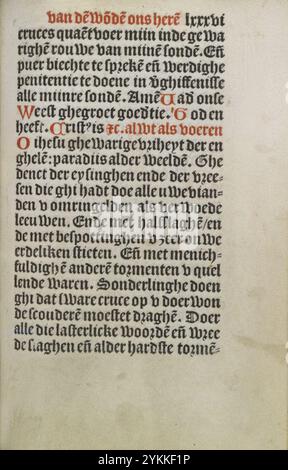 van dē wōdē ons herē lxxxvi
cruces quaēt voer miin inde ge wa
righēn rou we van miinē sondē. Eñ
puer biechte te sprekē eñ werdighe
penitentie te doene in v̄ghiffenisse
alle miinre sondē. Amē Uad onse
Weest ghegroet goedtie. God en
heeft. Cristȝ is ꝛc. alwt als voeren
O ihesu ghewarige vriheyt der en
ghelē: paradiis alder weeldē. Ghe
denct der eysinghen ende der vree-
sen die ghi hadt doe alle u we vian-
den v omringelden als verwoede
leeuwen. Ende met halsslaghē/en
de met bespottinghen v zeer on we
erdeliken stieten. Eñ met menich-
fuldighē anderē tormenten v quel
lende waren. Sonderlinghe doen
ghi dat sware cruce op v doer won
de scouderē moestet draghē. Doer
alle die lasterlicke woordē eñ wree
de slaghen eñ alder hardste tormē-
alamy
Image ID: 2YKKF1P
www.alamy.com